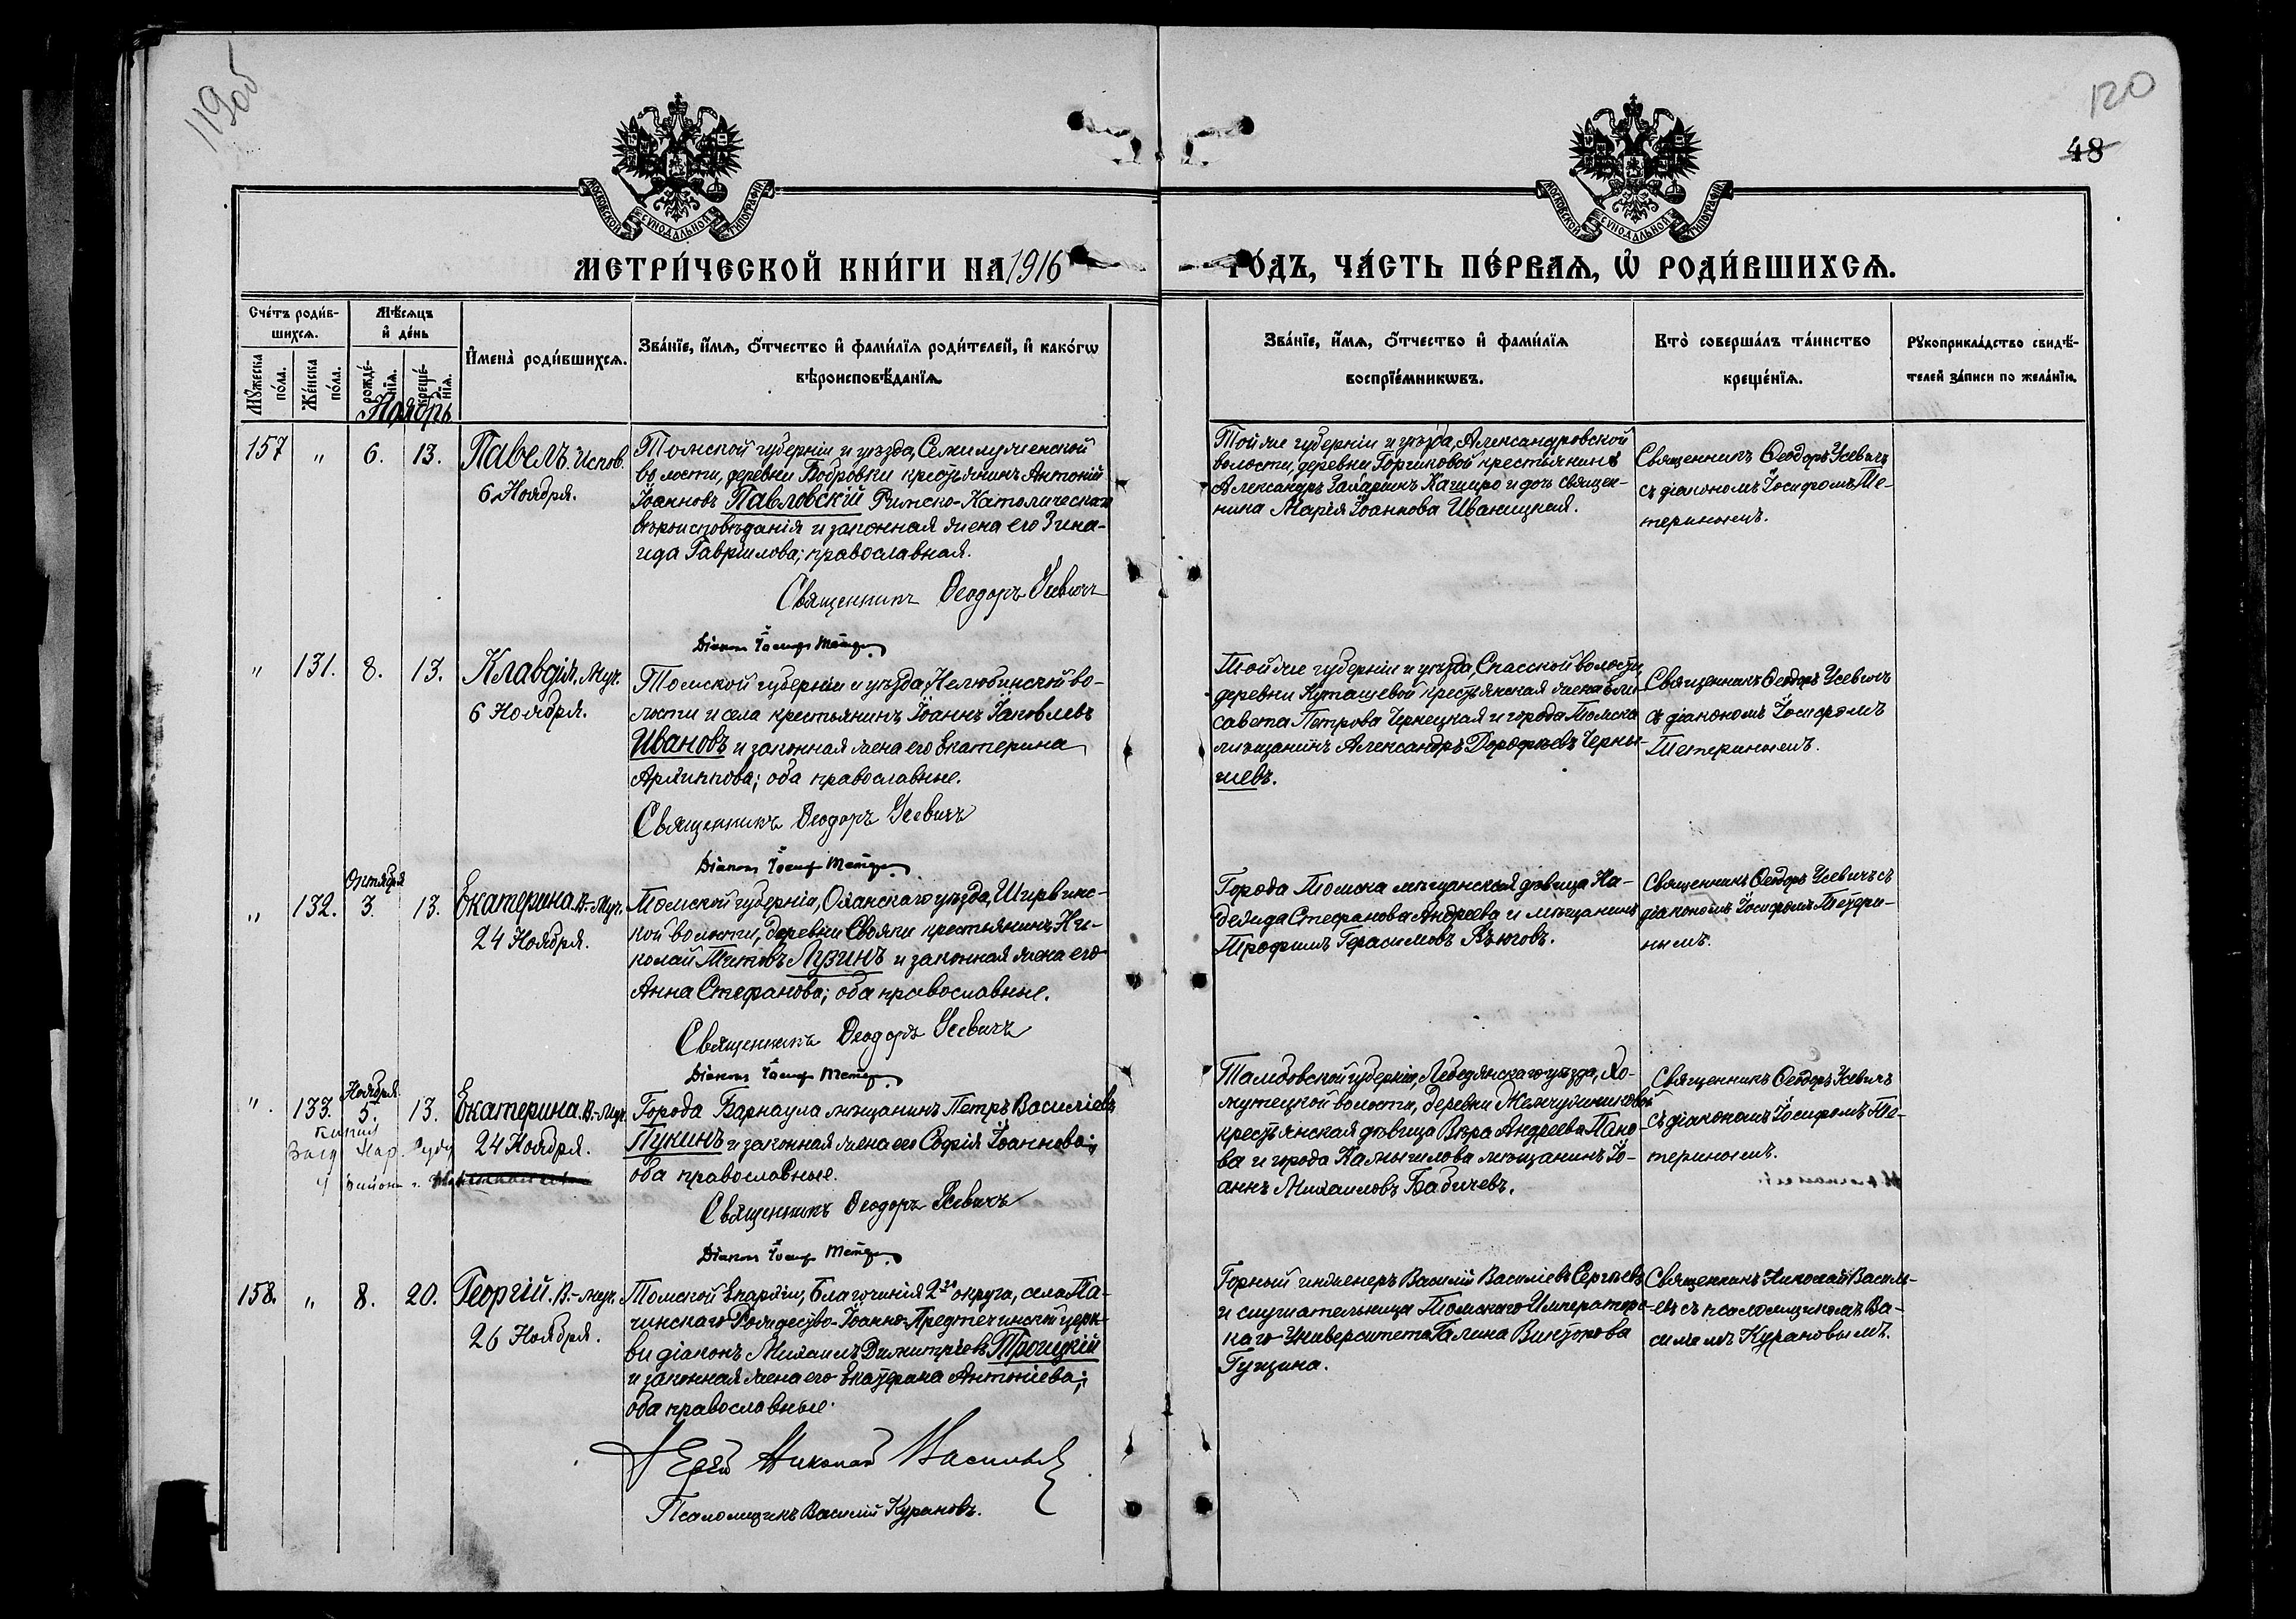 119об
120
48
МОСКОВСКОЙ СУНОДАЛЬНОЙ ТИПОГРАФІИ
МОСКОВСКОЙ СУНОДАЛЬНОЙ ТИПОГРАФІИ
МЕТРИ́ЧЕСКОЙ КНИ́ГИ НА 1916
ГО́ДЪ, ЧА́СТЬ ПЕ́РВАѦ, Ѽ РОДИ́ВШИХСѦ.
Сче́тъ роди́в-
шихсѧ.
Мѣ́сѧцъ
и҆ де́нь
Мꙋ́жеска
по́ла.
Же́нска
по́ла.
рожде́-
нїѧ.
креще́-
нїѧ.
И҆мена̀ роди́вшихсѧ.
Зва́нїе, и҆́мѧ, ѻ҆́тчество и҆ фами́лїѧ роди́телей, и҆ како́гѡ
вѣроисповѣ́данїѧ.
Зва́нїе, и҆́мѧ, ѻ҆́тчество и҆ фами́лїѧ
воспрїе́мникѡвъ.
Кто̀ соверша́лъ та́инство
креще́нїѧ.
Рꙋкоприкла́дство свидѣ́-
телей за́писи по жела́нїю.
Ноябрь
157 " 6. 13. Павелъ. Испов.
6 Ноября.
Томской губерніи и уѣзда, Семилуженской
волости, деревни Бобровки крестьянинъ Антоній
Іоанновъ Павловскій Римско-Католическаго
вѣроисповѣданія и законная жена его Зина-
ида Гавріилова; православная.
Священникъ Ѳеодоръ Усевичъ
Діаконъ Іосифъ
Той же губерніи и уѣзда, Александровской
волости, деревни Горшковой крестьянинъ
Александръ Захаріинъ Каширо и дочь священ-
ника Марія Іоаннова Иваницкая.
Священникъ Ѳеодоръ Усевичъ
съ діакономъ Іосифомъ Те-
теринымъ.
" 131. 8. 13. Клавдія, Муч.
6 Ноября.
Томской губерніи и уѣзда, Нелюбинской во-
лости и села крестьянинъ Іоаннъ Іаковлевъ
Ивановъ и законная жена его Екатерина
Архиппова; оба православные.
Священникъ Ѳеодоръ Усевичъ
Діаконъ Іосифъ
Той же губерніи и уѣзда, Спасской волости,
деревни Куташевой крестьянская жена Ели-
савета Петрова Чернецкая и города Томска
мѣщанинъ Александръ Дороѳеевъ Черны-
шевъ.
Священникъ Ѳеодоръ Усевичъ
съ діакономъ Іосифомъ
Тетеринымъ.
Октября
" 132. 3. 13. Екатерина. В.-Муч.
24 Ноября.
Томской губерніи, Оханскаго уѣзда, Ширвинс-
кой волости, деревни Свояки крестьянинъ Ни-
колай Титовъ Лузинъ и законная жена его
Анна Стефанова; оба православные.
Священникъ Ѳеодоръ Усевичъ
Діаконъ Іосифъ
Города Томска мѣщанская дѣвица На-
дежда Стефанова Андреева и мѣщанинъ
Трофимъ Герасимовъ Вьюговъ.
Священникъ Ѳеодоръ Усевичъ съ
діакономъ Іосифомъ Тетери-
нымъ.
Ноября
" 133. 5. 13. Екатерина. В.-Муч.
24 Ноября.
Города Барнаула мѣщанинъ Петръ Василіевъ
Пукинъ и законная жена его Софія Іоаннова;
оба православные.
Священникъ Ѳеодоръ Усевичъ
Діаконъ Іосифъ
Тамбовской губерніи, Лебедянскаго уѣзда, Хо-
мутецкой волости, деревни Жемчужниковой
крестьянская дѣвица Вѣра Андреева Пано-
ва и города Камышлова мѣщанинъ Іо-
аннъ Михаиловъ Бабичевъ.
Священникъ Ѳеодоръ Усевичъ
съ діакономъ Іосифомъ Те-
теринымъ.
158. " 8. 20. Георгій. В.-муч.
26 Ноября.
Томской Епархіи, Благочинія 2го округа, села Па-
чинскаго Рождество-Іоанно-Предтечинской церк-
ви діаконъ Михаилъ Димитріевъ Троицкій
и законная жена его Екатерина Антоніева;
оба православные.
Іерей Николай Васильевъ
Псаломщикъ Василій Курановъ.
Горный инженеръ Василій Василіевъ Сергѣевъ
и слушательница Томскаго Императорс-
каго Университета Галина Викторова
Гущина.
Священникъ Николай Василь-
евъ съ псаломщикомъ Ва-
силіемъ Курановымъ.